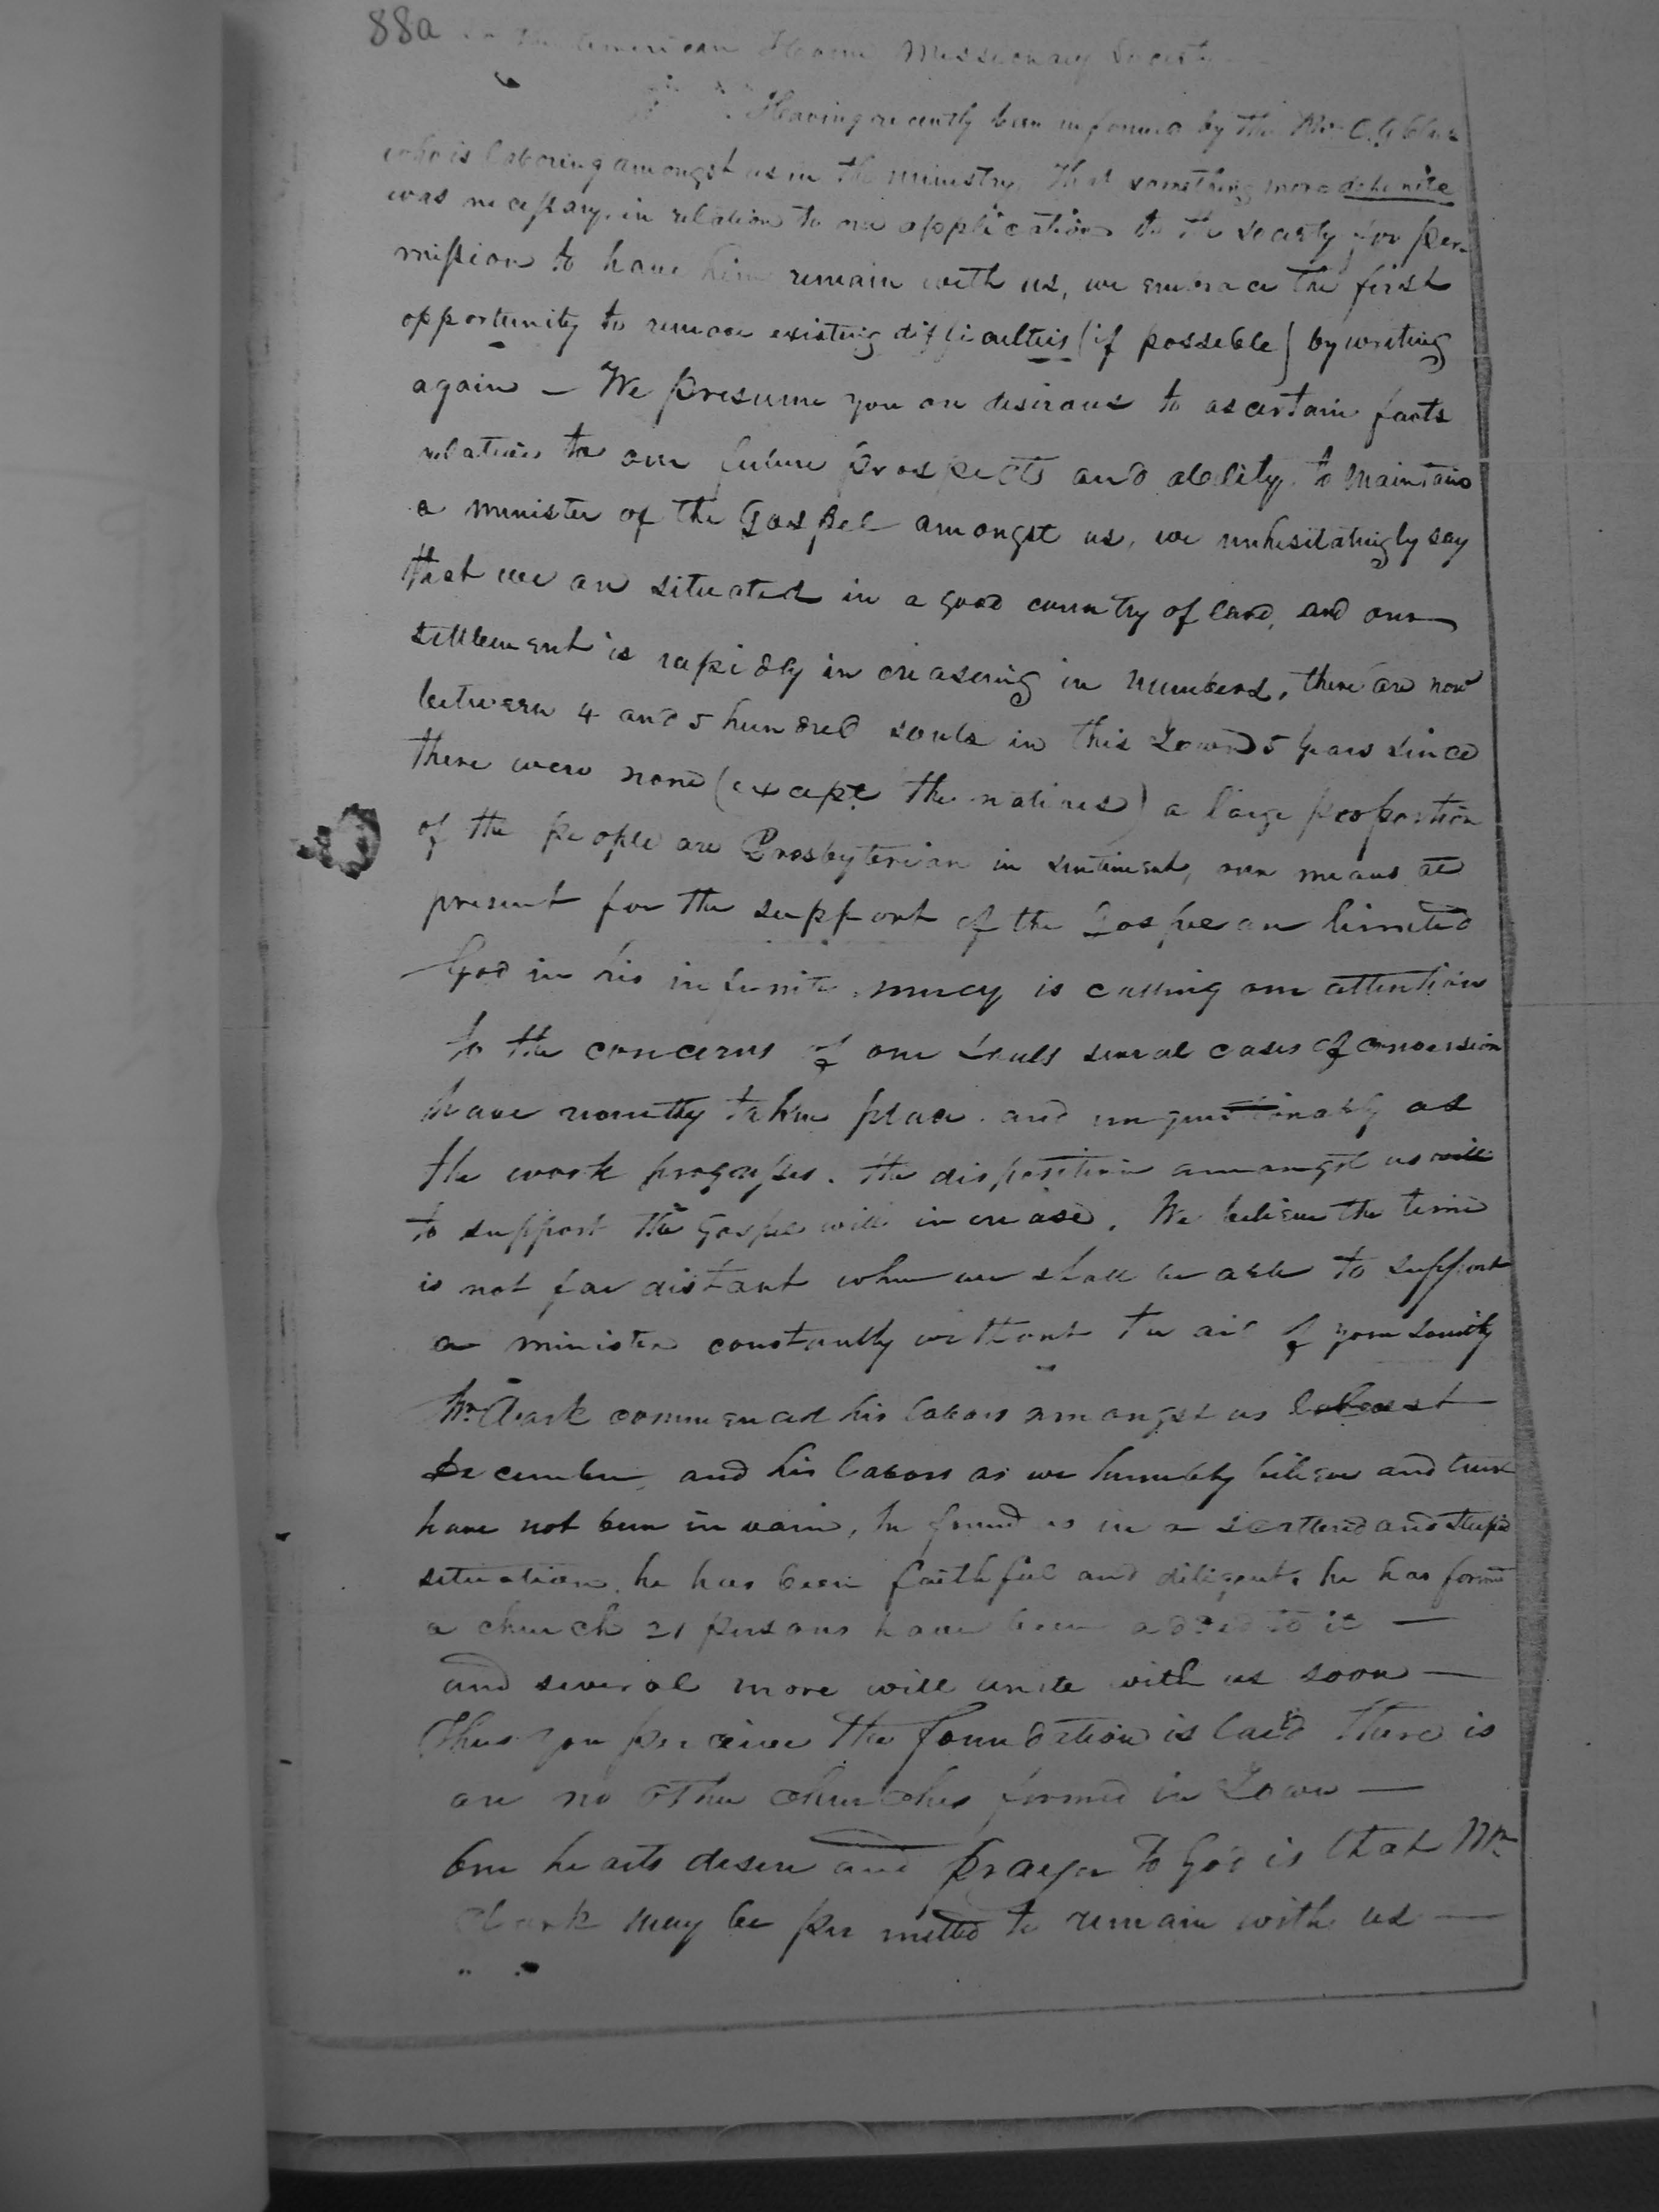 88a
American Home Missionary Society
Having recently been informed by the Rev C. G Clark
who is laboring amongst us in the ministry, that something more definite
was necessary, in relation to our application to the society for per-
mission to have him remain with us, we embrace the first
opportunity to remove existing difficulties (if possible) by writing
again — We presume you are desirous to ascertain facts
relative to our future prospects and ability to maintain
a minister of the Gospel amongst us, we unhesitatingly say
that we are situated in a good country of land, and our
settlement is rapidly increasing in numbers, there are now
between 4 and 5 hundred souls in this Town 5 years since
there were none (except the natives) a large proportion
of the people are Presbyterian in sentiment, our means at
present for the support of the Gospel are limited
God in his infinite mercy is calling our attention
to the concerns of our souls several cases of conversion
have recently taken place and unquestionably as
the work progresses. the disposition amongst us will
to support the Gospel will increase. We believe the time
is not far distant when we shall be able to support
a minister constantly without the aid of your society
Mr Clark commenced his labors amongst us last
December, and his labors as we humbly believe and trust
have not been in vain, he found us in a scattered and stupid
situation, he has been faithful and diligent, he has formed
a church 21 persons have been added to it —
and several more will unite with us soon —
Thus you perceive the foundation is laid there is
are no other churches formed in Town —
Our hearts desire and prayer to God is that Mr
Clark may be permitted to remain with us —